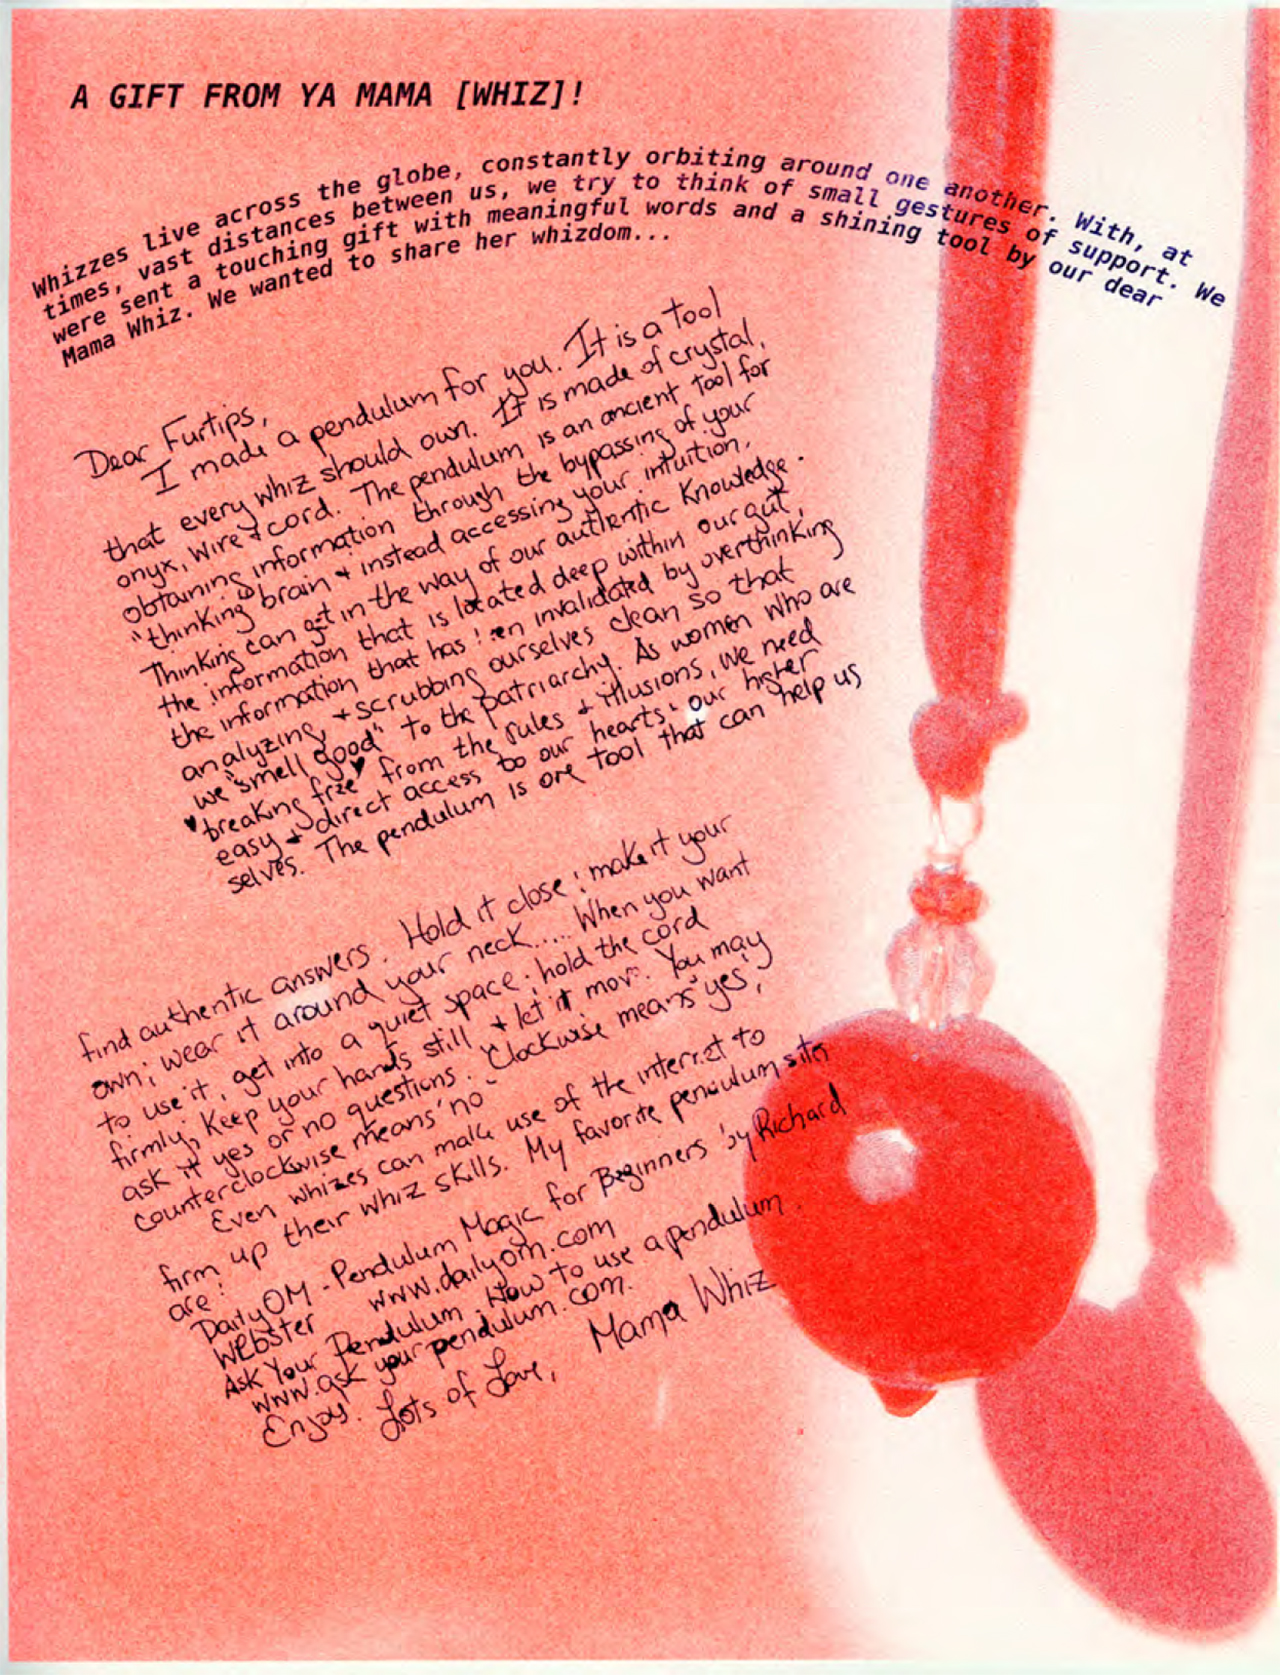 A GIFT FROM YA MAMA [WHIZ]!
Whizzes live across the globe, constantly orbiting around one another. With, at
times, vast distances between us, we try to think of small gestures of support. We
were sent a touching gift with meaningful words and a shining tool by our dear
Mama Whiz. We wanted to share her whizdom...
Dear Furtips,
I made a pendulum for you. It is a tool
that every whiz should own. It is made of crystal,
onyx, wire + cord. The pendulum is an ancient tool for
obtaining information through the bypassing of your
"thinking brain + instead accessing your intuition.
Thinking can get in the way of our authentic knowledge.
the information that is located deep within our gut,
the information that has been invalidated by overthinking
analyzing, + scrubbing ourselves clean so that
we "smell good" to the patriarchy. As women who are
♥breaking free♥ from the rules + illusions, we need
easy + direct access to our hearts + our higher
selves. The pendulum is one tool that can help us
find authentic answers. Hold it close; make it your
own; wear it around your neck..... When you want
to use it, get into a quiet space; hold the cord
firmly; Keep your hands still + let it move. You may
ask it yes or no questions. Clockwise means "yes",
counterclockwise means "no"
Even whizes can make use of the internet to
firm up their whiz skills. My favorite pendulum sites
are:
DailyOM - Pendulum Magic for Beginners by Richard
Webster www.dailyom.com
Ask Your Pendulum. How to use a pendulum.
www.askyourpendulum.com.
Enjoy! Lots of Love, Mama Whiz